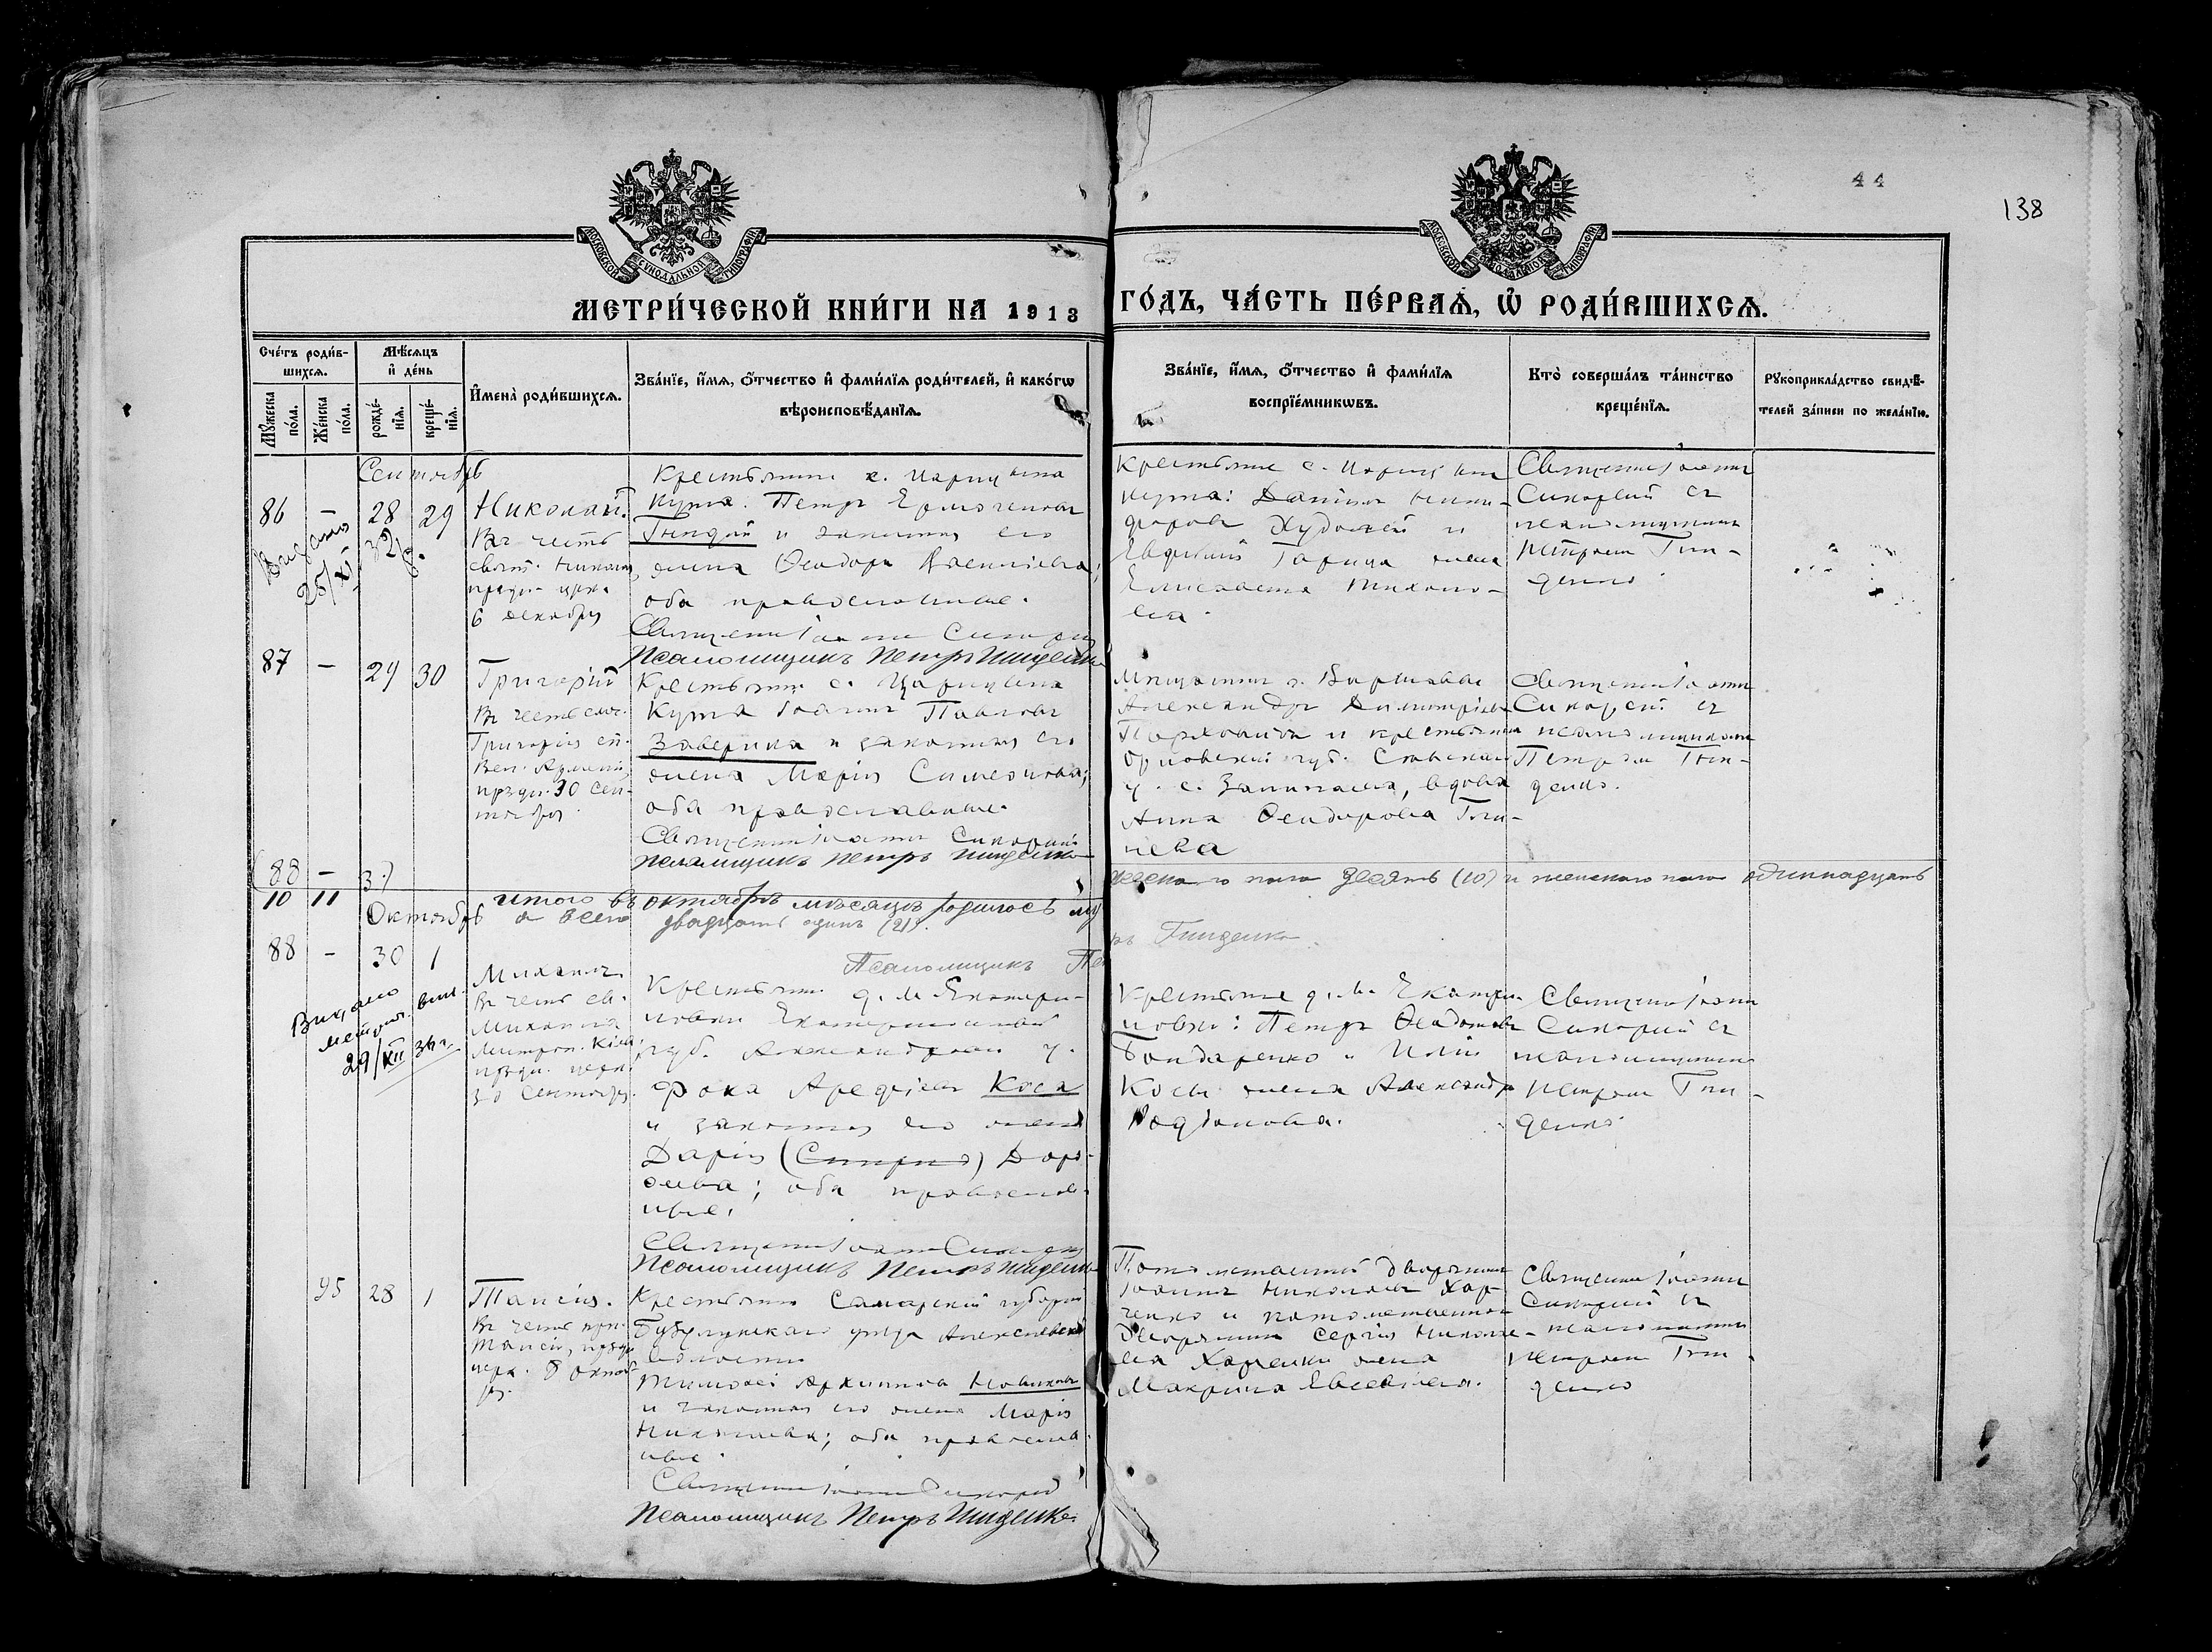 44
138
МОСКОВСКОЙ СѴНОДАЛЬНОЙ ТИПОГРАФІИ
МОСКОВСКОЙ СѴНОДАЛЬНОЙ ТИПОГРАФІИ
МЕТРИ́ЧЕСКОЙ КНИ́ГИ НА 1913
ГО́ДЪ, ЧА́СТЬ ПЕ́РВАѦ, Ѡ҆ РОДИ́ВШИХСѦ.
Сче́тъ роди́в-
шихсѧ.
Мꙋ́жеска по́ла.
Же́нска по́ла.
Мѣ́сѧцъ
и҆ де́нь
рожде́-
нїѧ.
креще́-
нїѧ.
И҆мена̀ роди́вшихсѧ.
Зва́нїе, и҆́мѧ, ѻ҆́тчество и҆ фами́лїѧ роди́телей, и҆ како́гѡ
вѣроисповѣ́данїѧ.
Зва́нїе, и҆́мѧ, ѻ҆́тчество и҆ фами́лїѧ
воспрїе́мникѡвъ.
Кто̀ соверша́лъ та́инство
креще́нїѧ.
Рꙋкоприкла́дство свидѣ́-
телей за́писи по жела́нїю.
Сентябрь
86 – 28 29
Выдано
25/XI
Николай.
Въ честь
свят. Николая
6 декабря
Крестьянинъ с. Царицына
Кута. Петръ Ермогеновъ
и законная его
жена Ѳеодора Васильева;
оба православные.
Священникъ Іоаннъ
Псаломщикъ Петръ Гниденко
Крестьяне с. Царицына
Кута: Даніилъ Ники-
форовъ Худолей и
жена
Елисавета Тихоно-
ва.
Священникъ Іоаннъ
съ
псаломщикомъ
Петромъ Гни-
денко.
87 – 29 30
Григорій
Въ честь
Григорія еп.
Вел. Арменіи,
праздн. 30 сен-
тября.
Крестьянинъ с. Царицына
Кута Іоаннъ Павловъ
Заверуха и законная его
жена Марія Симеонова;
оба православные.
Священникъ Іоаннъ
Псаломщикъ Петръ Гниденко
Мѣщанинъ г. Варшавы
Александръ Димитріевъ
и крестьянка
Орловской губ. Сѣвскаго
у. с. вдова
Анна Ѳеодорова
Священникъ Іоаннъ
съ
псаломщикомъ
Петромъ Гни-
денко.
(88 – 3.)
10 11 Итого въ октябрѣ мѣсяцѣ родилось му
жескаго пола десять (10) и женскаго пола одиннадцать
Октябрь а всего двадцать одинъ (21).
Псаломщикъ Пе
ръ Гниденко.
88 – 30 1
Выдано
29/XII
Михаилъ
Въ честь св.
Михаила
Митроп. Кіев.
праздн. церк.
30 Сентября.
Крестьянинъ д. М. Екатери-
новки Екатеринославской
губ. Александров. у.
Фока Арефіевъ Коса
и законная его жена
Дарія
оба православ-
ные.
Священникъ Іоаннъ
Псаломщикъ Петръ Гниденко
Крестьяне д. М. Екатери-
новки: Петръ Ѳеодотовъ
Бондаренко и
Косы жена Александра
Родіонова.
Священникъ Іоаннъ
съ
псаломщикомъ
Петромъ Гни-
денко
95 28 1
Таисія.
Въ честь прп.
Таисіи, праздн.
церк. 8 октяб-
ря.
Крестьянинъ Самарской губерніи
Бузулукскаго уѣзда Алексѣевской
волости
Тимоѳей Архиповъ Новиковъ
и законная его жена Марія
Николаева; оба православ-
ные.
Священникъ Іоаннъ
Псаломщикъ Петръ Гниденко.
Потомственный дворянинъ
Іоаннъ Николаевъ Хар-
ченко и потомственнаго
дворянина Сергія Никола-
ева Харченко жена
Макрина Евсевіева.
Священникъ Іоаннъ
съ
псаломщикомъ
Петромъ Гни-
денко